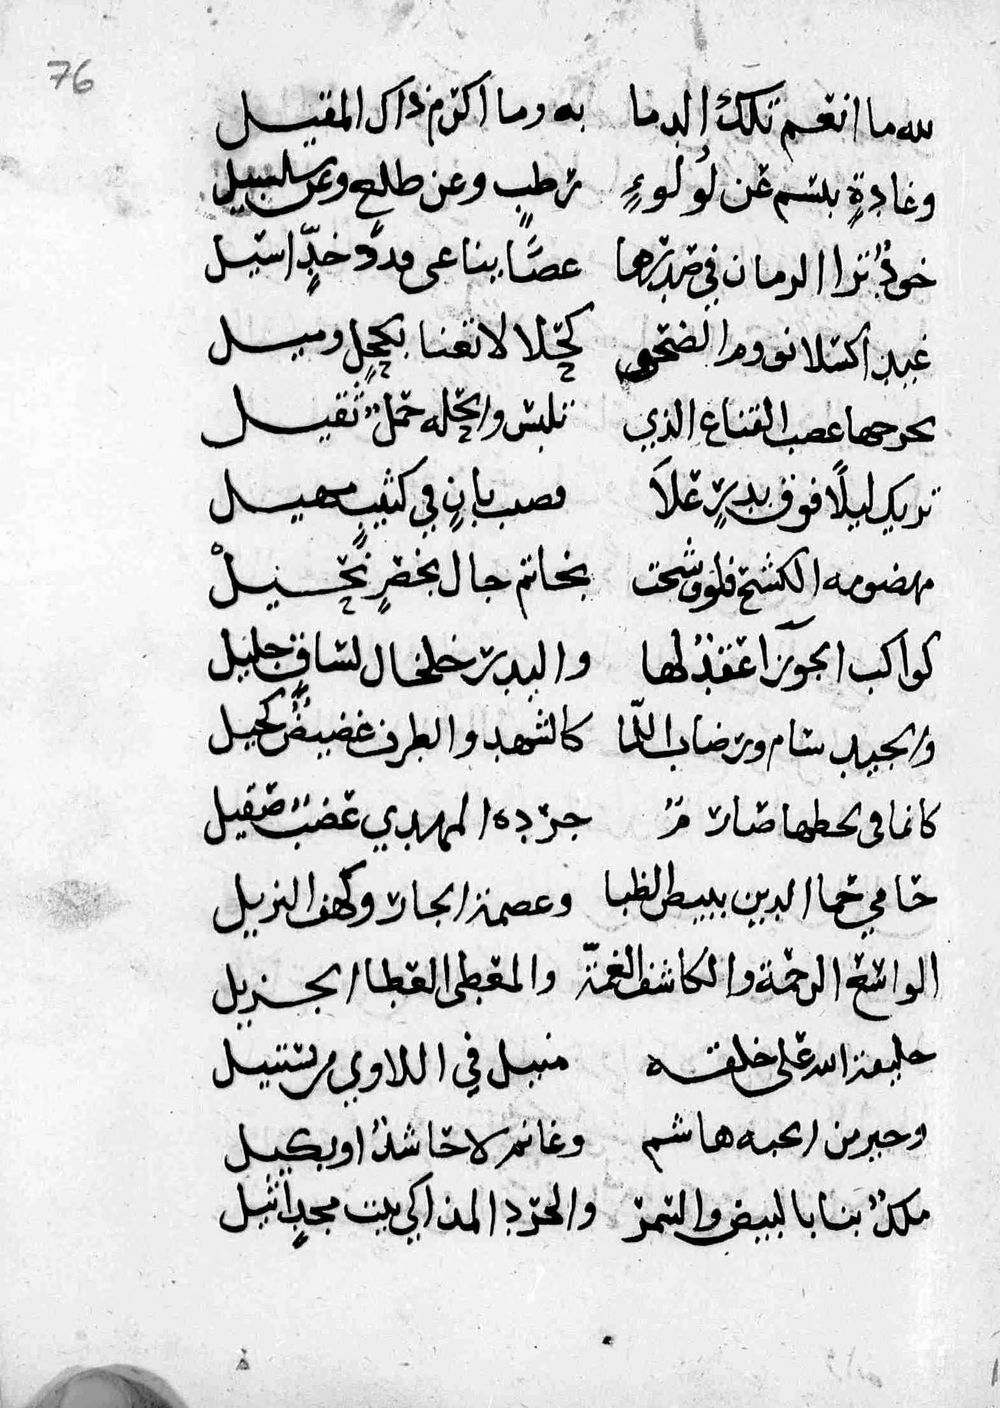 76
لله ما انعم تلك الدما به وما اكرم ذاك المقيل
وغادةٍ بتسم عن لولوءٍ رطبٍ وعن طلعٍ وعن سلسبيل
خودٌ ترا الرمان في صدرها عصًا بناعى قدد خدٍّ اسيل
غيدا كسلا نووم الضحى كحلا لا تعنا بكحلٍ وميل
بحرحها عصب القناع الذي تلبس والحله حملٌ ثقيل
تريك ليلًا فوق بدرٍ علَا قصب بانٍ في كثيبٍ مهيل
مهضومه الكشح فلو وشحت بخاتم جال بخصرٍ نحيلْ
كواكب الجوزآ عقدٌ لها والبدر خلخال لساقٍ جليل
والجيد سام ورضاب اللّما كالشهد والطرف غضيضٌ كحيل
كانما في لحظها صارمٌ جرده المهدي عضبٌ صقيل
حامي حما الدين ببيض الظبا وعصمة الجار وكهف النزيل
الواسع الرحمة والكاشف الغمّة والمعطى العطا الجزيل
خليفة الله على خلقه منيل في اللاوي مستنيل
وخير من انجبه هاشم وغانم لا حاشدٌ او بكيل
ملكٌ بنا بالبيض والسمر والجرد المذاكي بيت مجدٍ اثيل